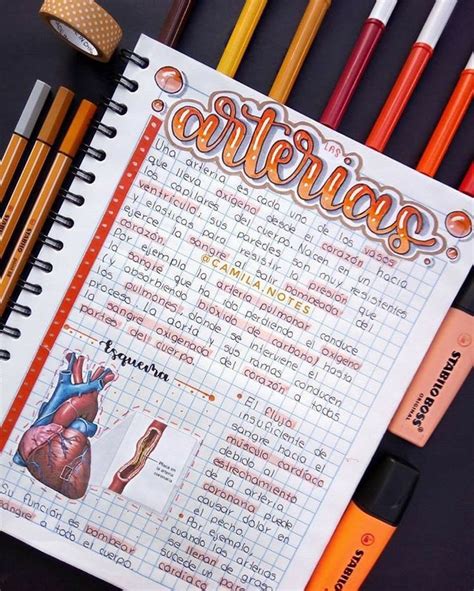 LAS
arterias
Una arteria es cada uno de los vasos
que lleva oxígeno desde el corazón hacia
los capilares del cuerpo. Nacen en un
ventrículo; sus paredes son muy resistentes
y elásticas para resistir la presión que
ejerce la sangre al salir bombeada del
corazón.
Por ejemplo la arteria pulmonar
@CAMILA.NOTES
(la sangre que ha ido perdiendo el oxígeno
y absorbiendo bióxido de carbono) hasta
los pulmones, donde se interviene el
proceso. La aorta y sus ramas conducen
la sangre oxigenada del corazón a todas
partes del cuerpo.
Esquema
Placa en
la arteria
coronaria
Su función es bombear
sangre a todo el cuerpo.
• El flujo
insuficiente de
sangre hacia el
músculo cardíaco
debido al
estrechamiento
de la arteria
coronaria puede
causar dolor en
el pecho.
• Por ejemplo,
cuando las arterias
se llenan de grasa
sucede un paro
cardíaco
STABILO BOSS
ORIGINAL
STABILO BOSS